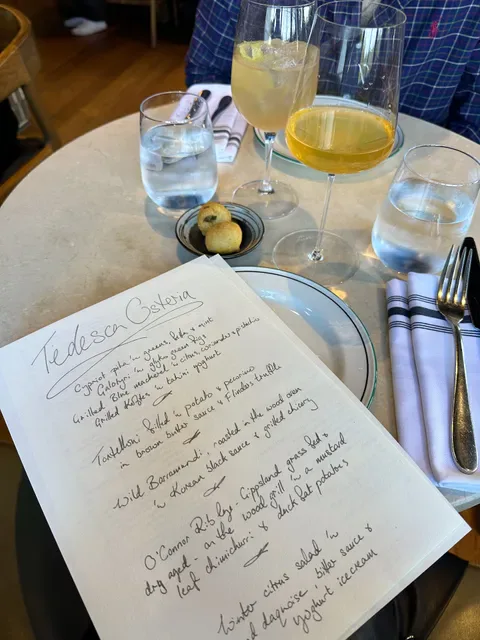 Tedesca Osteria
in greens, feta & mint
in
Grilled Blue mackerel in citrus, coriander & pistachio
Grilled Koftes in tahini yoghurt
Tortelloni filled in potato & pecorino
in brown butter sauce & Flinders truffle
Wild Barramundi roasted in the wood oven
in Korean black sauce & grilled chicory
O'Connor Rib Eye: Gippsland grass fed &
dry aged - on the wood grill in a mustard
leaf chimichurri & duck fat potatoes
Winter citrus salad in
daquoise bitter sauce &
yoghurt ice cream